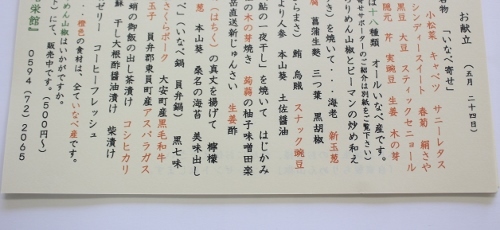 お献立 (五月 二十四日)
名物 「いなべ寄せ」
小松菜 キャベツ サニーレタス
シンディースイート 春菊 絹さや
黒豆 大豆 スティックセニョール
隠元 芹 実豌豆 生姜 木の芽
は十八種類 オールいなべ産です。
寄せサポーターのご紹介は別紙をご覧下さい)
ちりめん山椒とピーマンの炒め和え
き)を焼いて・・・海老 新玉葱
菖蒲生麩 三つ葉 黒胡椒
らまさ) 鮪 烏賊 スナック豌豆
より人参 本山葵 土佐醤油
鮎の一夜干し」を焼いて はじかみ
の木の芽焼き 蒟蒻の柚子味噌田楽
岳直送新じゅんさい 生姜酢
(はちく)の真丈を揚げて 檸檬
葱 本山葵 桑名の海苔 美味出し
べ」(いなべ鍋 員弁鍋) 黒七味
さくらポーク 大安町産黒毛和牛
玉子 員弁郡東員町産アスパラガス
蛸の御飯の出し茶漬け コシヒカリ
蘇 干し大根酢醤油漬け 柴漬け
ゼリー コーヒーフレッシュ
・・・橙色の食材は、全ていなべ産です。
めん山椒はいかがですか。
)にて、販売中です。(500円~)
栄館』 0594(72)2065